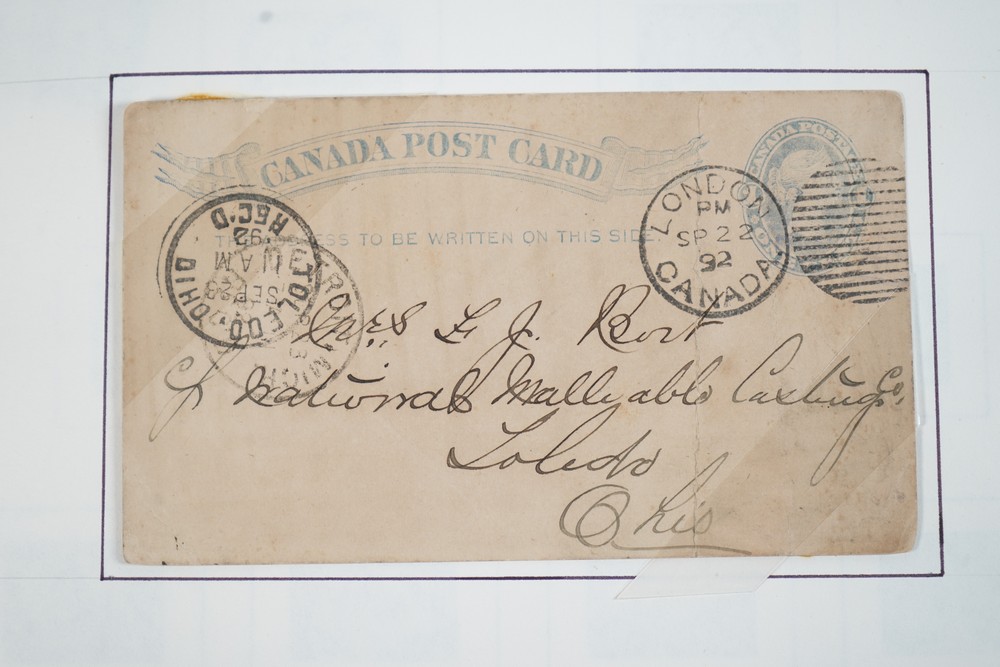 CANADA POST CARD
CANADA POST
THE ADDRESS TO BE WRITTEN ON THIS SIDE.
LONDON
PM
SP 22
92
CANADA
TOLEDO OHIO
SEP 23
11 AM
92
REC'D
MICH
Chas F. J. Bort
National Malleable Casting Co.
Toledo
Ohio